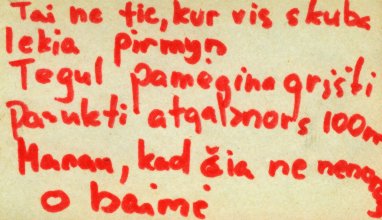 Tai ne tie, kur vis skuba
lekia pirmyn
Tegul pamegina grįšti
Pasukti atgal nors 100m
Manau, kad čia ne nenoras
o baimė